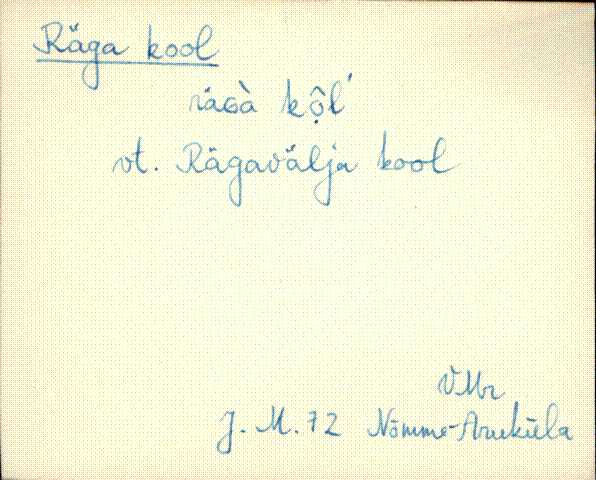 Räga kool
räGà kọ̑l'
vt. Rägavälja kool
VMr
J. M. 72 Nõmme-Aruküla